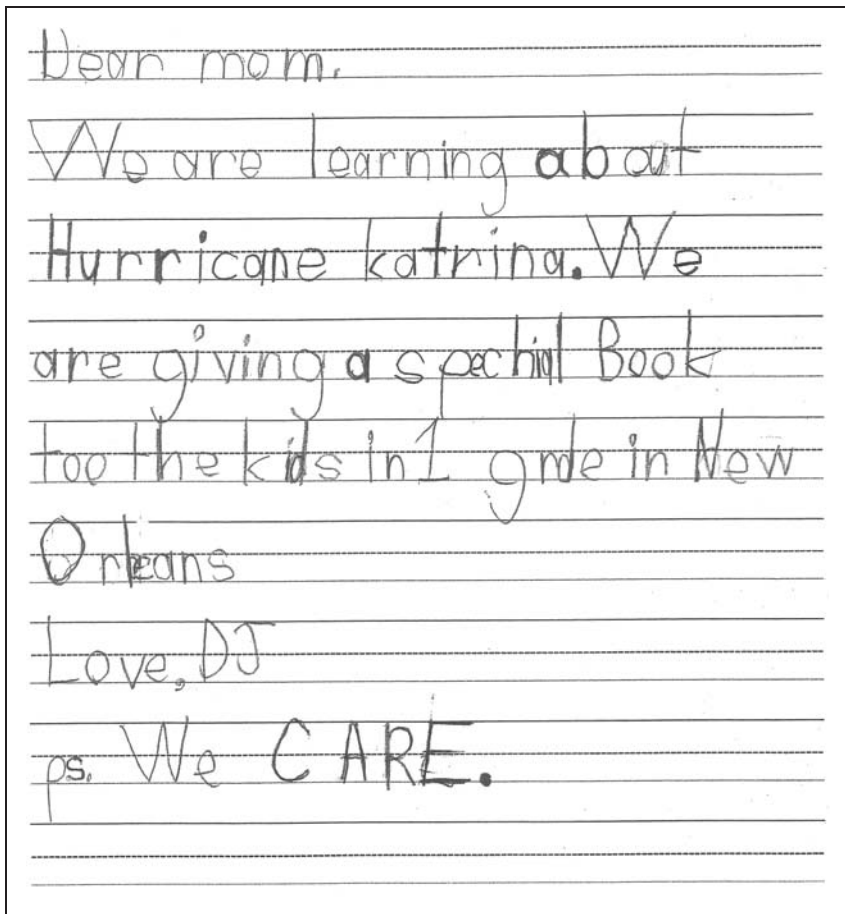 Dear mom.
We are learning about
Hurricane katrina. We
are giving a spechial Book
too the kids in 1 grde in New
Orleans
Love, DJ
ps. We CARE.